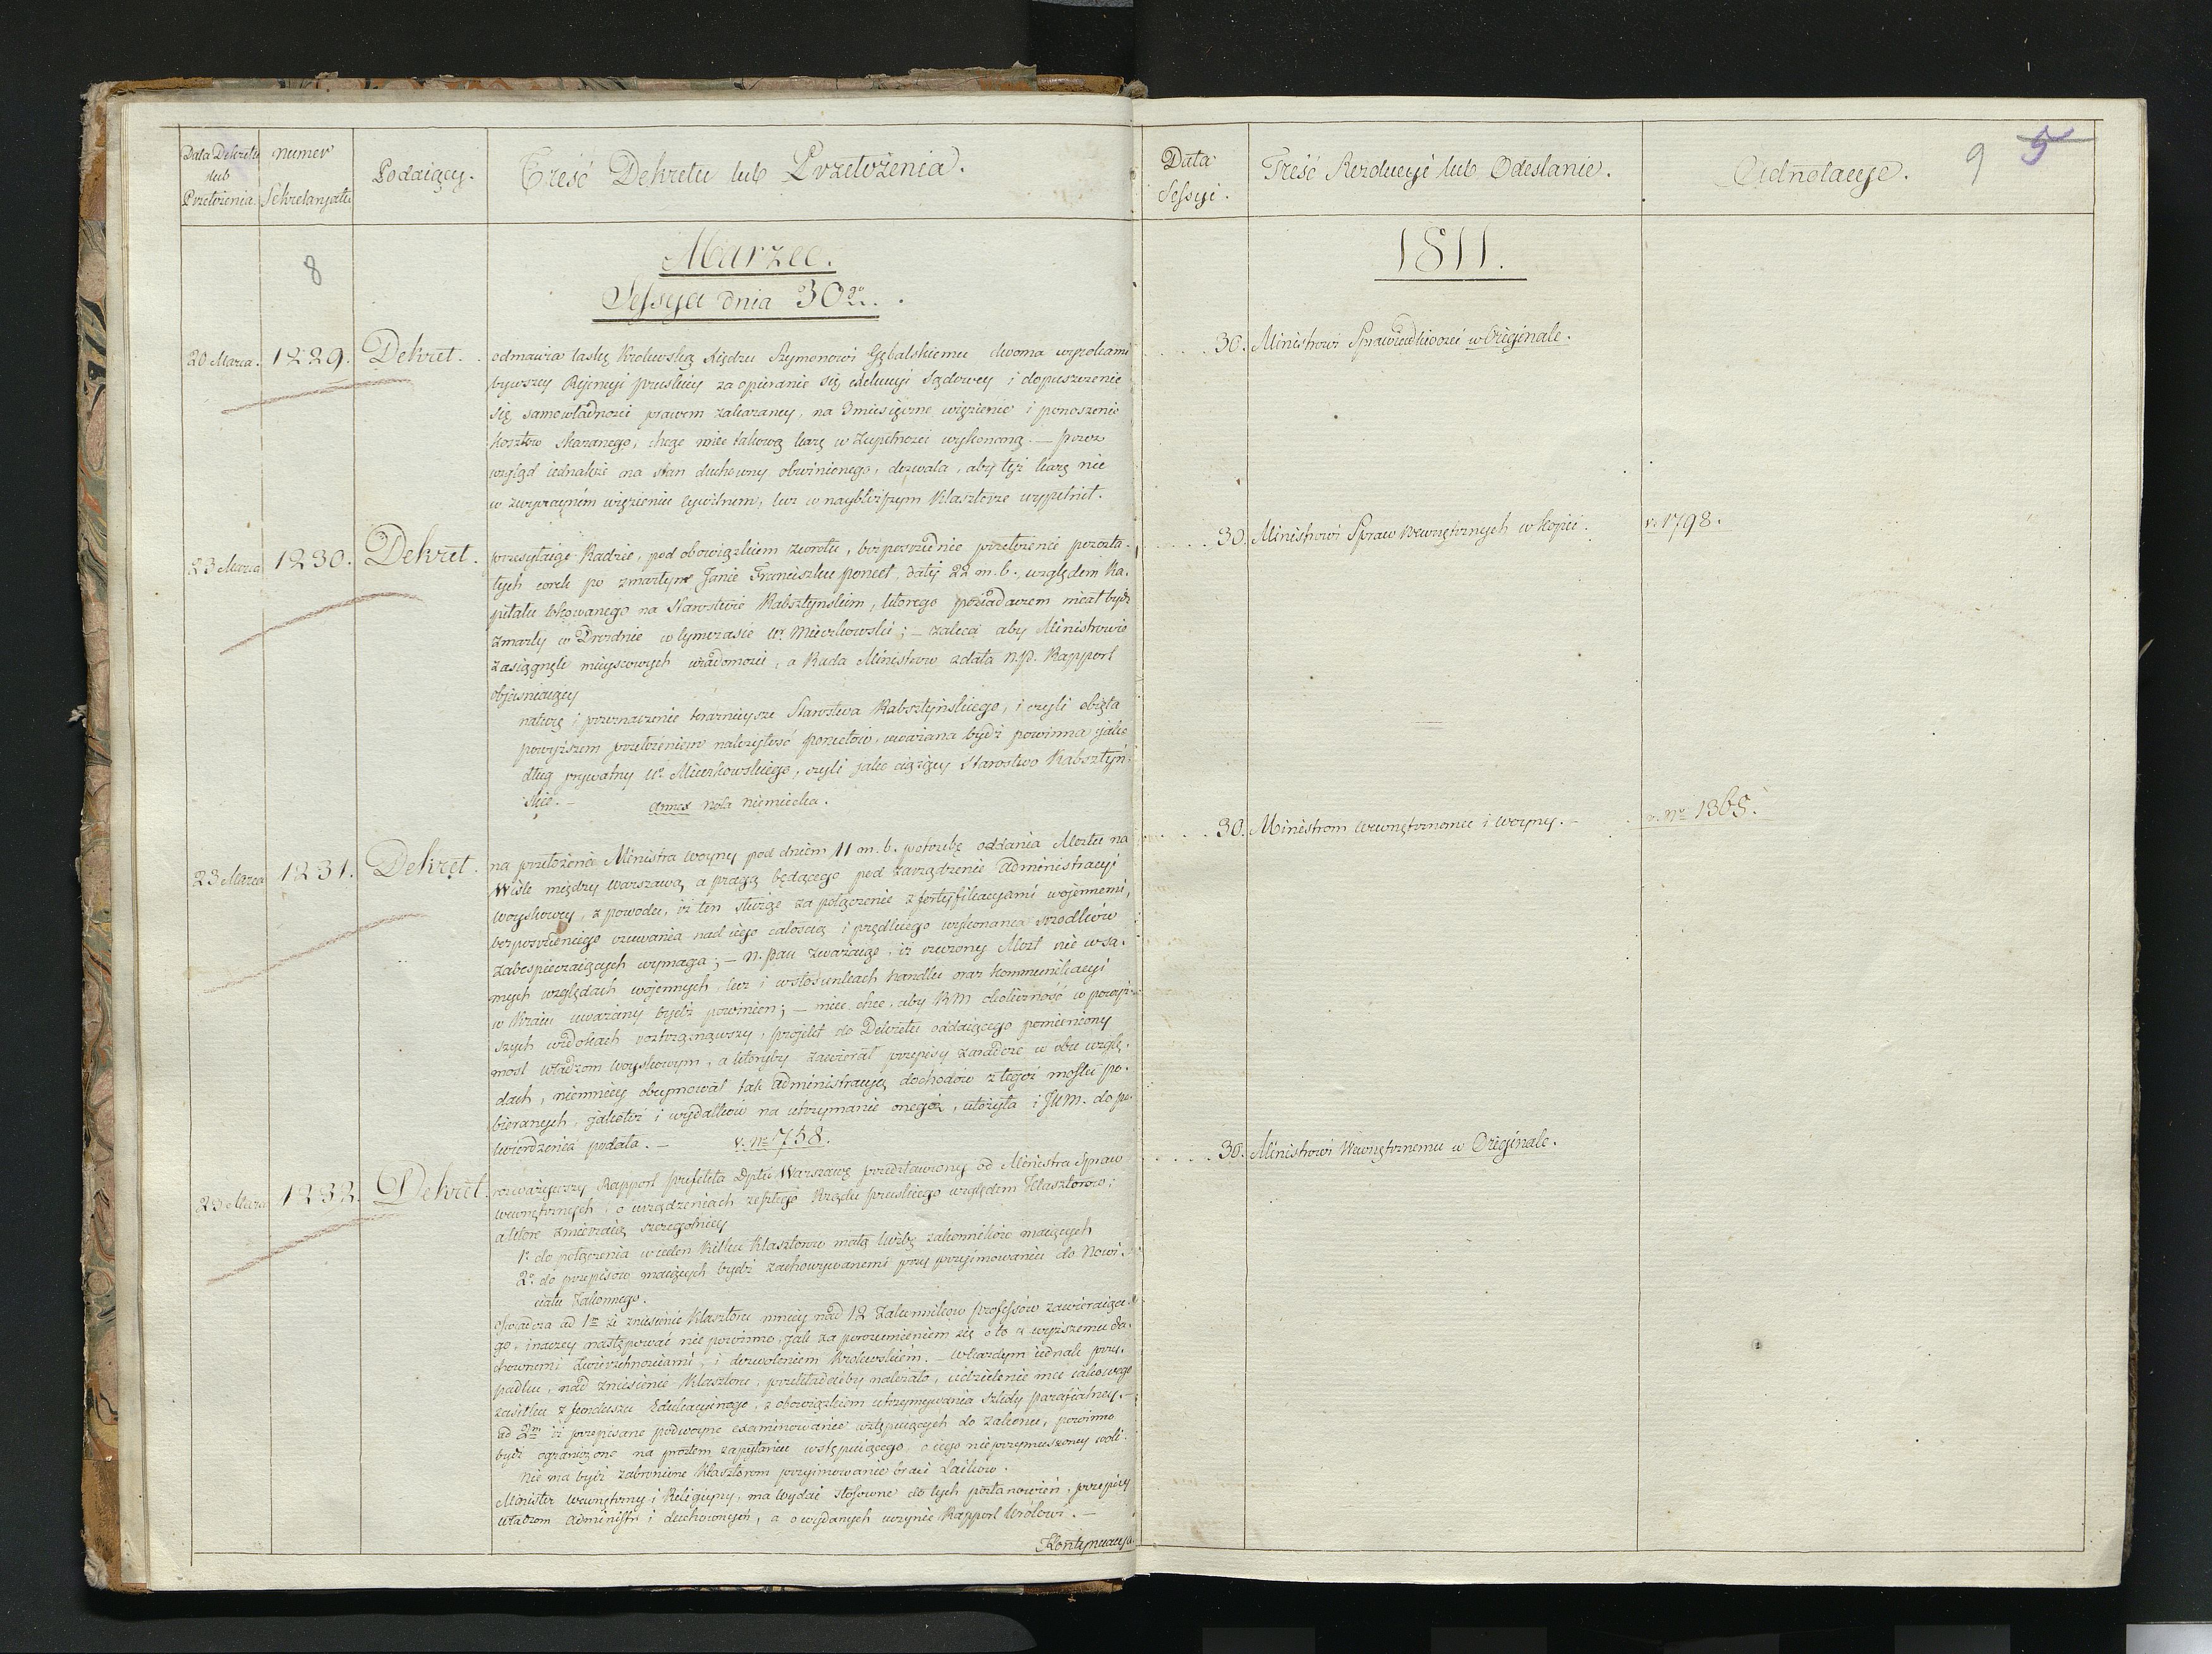 Data Dekretu
lub
Przełożenia.
numer
Sekretaryatu
Podaiący.
Treść Dekretu lub Przełożenia.
Data
Sessyi.
Treść Rezolucyi lub Odesłanie.
Adnotacye.
9 5
8
Marzec.
1811.
Sessya dnia 30go.
20 Marca. 1229. Dekret.
odmawia łaskę Krolewską Xiędzu Szymonowi Gębalskiemu dwoma wyrokami
bywszey Rejencyi pruskiey za opieranie się exekucyi Sądowey i dopuszczenie
się samowładności prawem zakazaney, na 3miesięczne więzienie i ponoszenie
kosztow skazanego, chcąc miec takową karę w Zupełności wykonaną. — przez
wzgląd iednakże na stan duchowny obwinionego, dozwala, aby tęż karę nie
w zwyczaynem więzieniu cywilnem, lecz w naybliższym Klasztorze wypełnił.
30. Ministrowi Sprawiedliwosci w Originale.
23 Marca 1230. Dekret.
przesyłaiąc Radzie, pod obowiązkiem zwrotu, bezposrednie przełożenie pozosta-
łych corek po zmarłym Janie Franciszku poncet, datę 22 m. b. względem Ka-
pitału lokowanego na Starostwie Rabsztynskim, ktorego posiadaczem miał bydz
zmarły w Dreznie w tymczasie Ur. Mieczkowski; — zaleca aby Ministrowie
zasiągnęli mieyscowych wiadomosci, a Rada Ministrow zdała NP. Rapport
objasniaiący
naturę i przeznaczenie teraznieysze Starostwa Rabsztynskiego, i czyli obięta
powyższem przełożeniem należytość poncetow, uważana bydź powinna jako
dług prywatny Ur. Mieczkowskiego, czyli jako ciążący Starostwo Rabsztyń-
skie. — annex nota niemiecka.
30. Ministrowi Spraw Wewnętrznych w kopii.
v. 1798.
23 Marca 1231. Dekret.
na przełożenie Ministra woyny pod dniem 11 m. b. potrzebę oddania Mostu na
Wiśle między Warszawą a pragą będącego pod zarządzenie Administracyi
woyskowey, z powodu, iż ten służąc za połączenie z fortyfikacyami wojennemi,
bezposredniego czuwania nad iego całoscią i prędkiego wykonania srzodkow
zabespieczaiących wymaga; — N. Pan zważaiąc, iż rzeczony Most nie w sa-
mych względach wojennych, lecz i w stosunkach handlu oraz kommunikacyi
w Kraiu uważany bydź powinien; — miec chce, aby RM okoliczność w powyż-
szych widokach roztrząsnąwszy, projekt do Dekretu oddaiącego pomieniony
most władzom woyskowym, a ktoryby zawierał przepisy zaradcze w obu wzglę-
dach, niemniey obeymował tak administracyą dochodow z tegoż mostu po-
bieranych, jakoteż i wydatkow na utrzymanie onegoż, ułożyła i JKM. do po-
twierdzenia podała. — v. Nr 758.
30. Ministrom Wewnętrznemu i woyny. —
v. Nr 1365.
23 Marca 1232. Dekret.
rozważywszy Rapport prefekta Dptu Warszawę przedstawiony od Ministra Spraw
wewnętrznych, o urządzeniach zeszłego Rządu pruskiego względem Klasztorow;
a ktore zmierzaią szczegolniey
1o do połączenia w ieden Kilku Klasztorow małą liczbę zakonnikow maiących
2o do przepisow maiących bydź zachowywanemi przy przyimowaniu do Nowi-
ciatu Zakonnego.
oswiadcza ad 1m że zniesienie Klasztoru mniey nad 12 Zakonnikow professow zawieraiące-
go, inaczey następować nie powinno, jak za porozumieniem się o to z wyższemi du-
chownemi Zwierzchnosciami, i dozwoleniem Krolewskiem. — W każdym iednak przy-
padku, nad zniesienie Klasztoru, przekładaćby należało, udzielenie mu iakowego
zasiłku z funduszu Edukacyinego, z obowiązkiem utrzymywania szkoły parafialney. —
ad 2m iż przepisane podwoyne examinowanie wstępuiących do Zakonu, powinno
bydź ograniczone na prostem zapytaniu wstępuiącego, o iego nieprzymuszoney woli.
Nie ma bydź zabronione Klasztorom przyimowanie braci Laikow.
Minister wewnętrzny i Religiyny, ma wydać stosowne do tych postanowień, przepisy
władzom administr. i duchownym, a o wydanych uczynić Rapport Krolowi. —
30. Ministrowi Wewnętrznemu w Originale.
Kontynuacya.